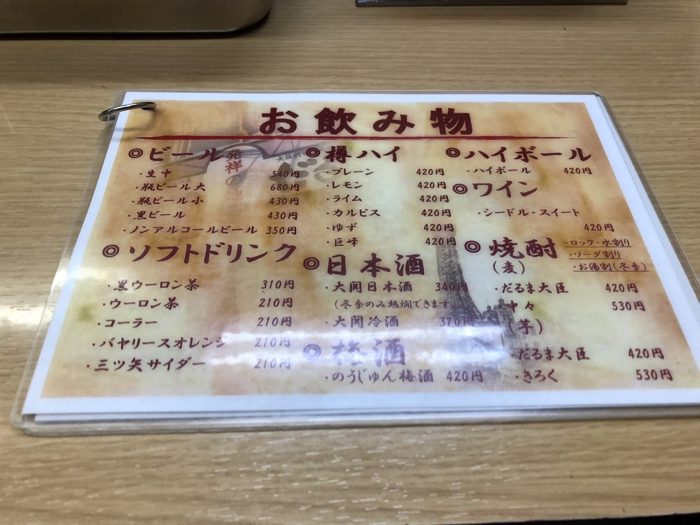 お飲み物
◎ビール
・生中 540円
・瓶ビール大 680円
・瓶ビール小 430円
・黒ビール 430円
・ノンアルコールビール 350円
◎ソフトドリンク
・黒ウーロン茶 310円
・ウーロン茶 210円
・コーラー 210円
・バヤリースオレンジ 210円
・三ツ矢サイダー 210円
◎樽ハイ
・プレーン 420円
・レモン 420円
・ライム 420円
・カルピス 420円
・ゆず 420円
・巨峰 420円
◎日本酒
・大関日本酒 340円
(冬季のみ熱燗できます
・大関冷酒 370円
◎梅酒
・のうじゅん梅酒 420円
◎ハイボール
・ハイボール 420円
◎ワイン
・シードル・スイート
420円
◎焼酎
・ロック・水割り
・ソーダ割り
・お湯割(冬季)
(麦)
・だるま大臣 420円
・中々 530円
(芋)
・だるま大臣 420円
・きろく 530円
発祥